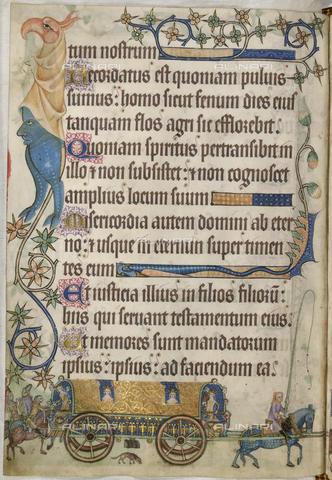 tum nostrum
Recordatus est quoniam puluis
sumus: homo sicut fenum dies eius
tanquam flos agri sic efflorebit.
Quoniam spiritus pertransibit in
illo ⁊ non subsistet: ⁊ non cognoscet
amplius locum suum
Misericordia autem domini ab eter
no: ⁊ usque in eternum super timen
tes eum
Et iusticia illius in filios filiorū:
hiis qui seruant testamentum eius.
Et memores sunt mandatorum
ipsius: ipsius: ad faciendum ea.
ALINARI
ALINARI
ALINARI
ALINARI